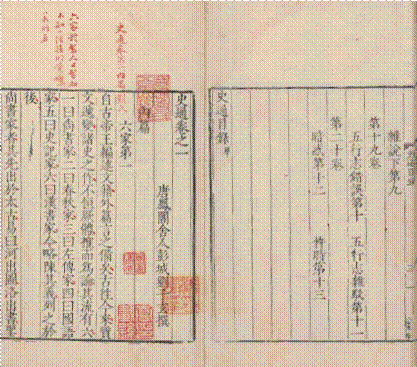 雜說下第九
第十九卷
五行志錯誤第十 五行志雜駁第十一
第二十卷
暗惑第十二 忤時第十三
史通目錄
史通卷之一
唐鳳閣舍人彭城劉子玄撰
內篇
六家第一
自古帝王編述文籍外篇言之備矣古往今來質
文遞變諸史之作不恒厥體榷而為論其流有六
一曰尚書家二曰春秋家三曰左傳家四曰國語
家五曰史記家六曰漢書家今略陳其義列之於
後
尚書家者其先出於太古易曰河出圖洛出書聖